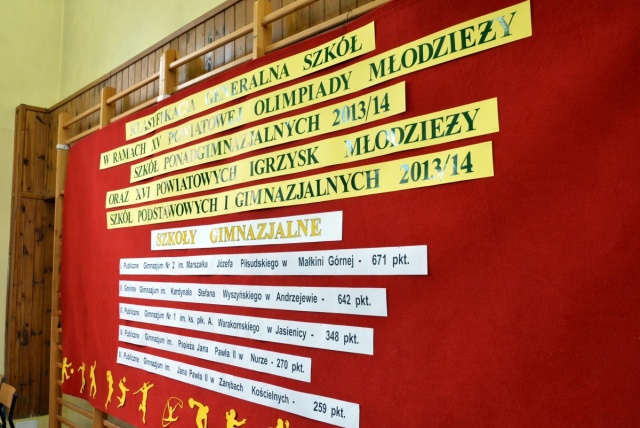 KLASYFIKACJA GENERALNA SZKÓŁ
W RAMACH XV POWIATOWEJ OLIMPIADY MŁODZIEŻY
SZKÓŁ PONADGIMNAZJALNYCH 2013/14
ORAZ XVI POWIATOWYCH IGRZYSK MŁODZIEŻY
SZKÓŁ PODSTAWOWYCH I GIMNAZJALNYCH 2013/14
SZKOŁY GIMNAZJALNE
I. Publiczne Gimnazjum Nr 2 im. Marszałka Józefa Piłsudskiego w Małkini Górnej - 671 pkt.
II. Gminne Gimnazjum im. Kardynała Stefana Wyszyńskiego w Andrzejewie - 642 pkt.
III. Publiczne Gimnazjum Nr 1 im. ks. płk. A. Warakomskiego w Jasienicy - 348 pkt.
IV. Publiczne Gimnazjum im. Papieża Jana Pawła II w Nurze - 270 pkt.
V. Publiczne Gimnazjum im. Jana Pawła II w Zarębach Kościelnych - 259 pkt.